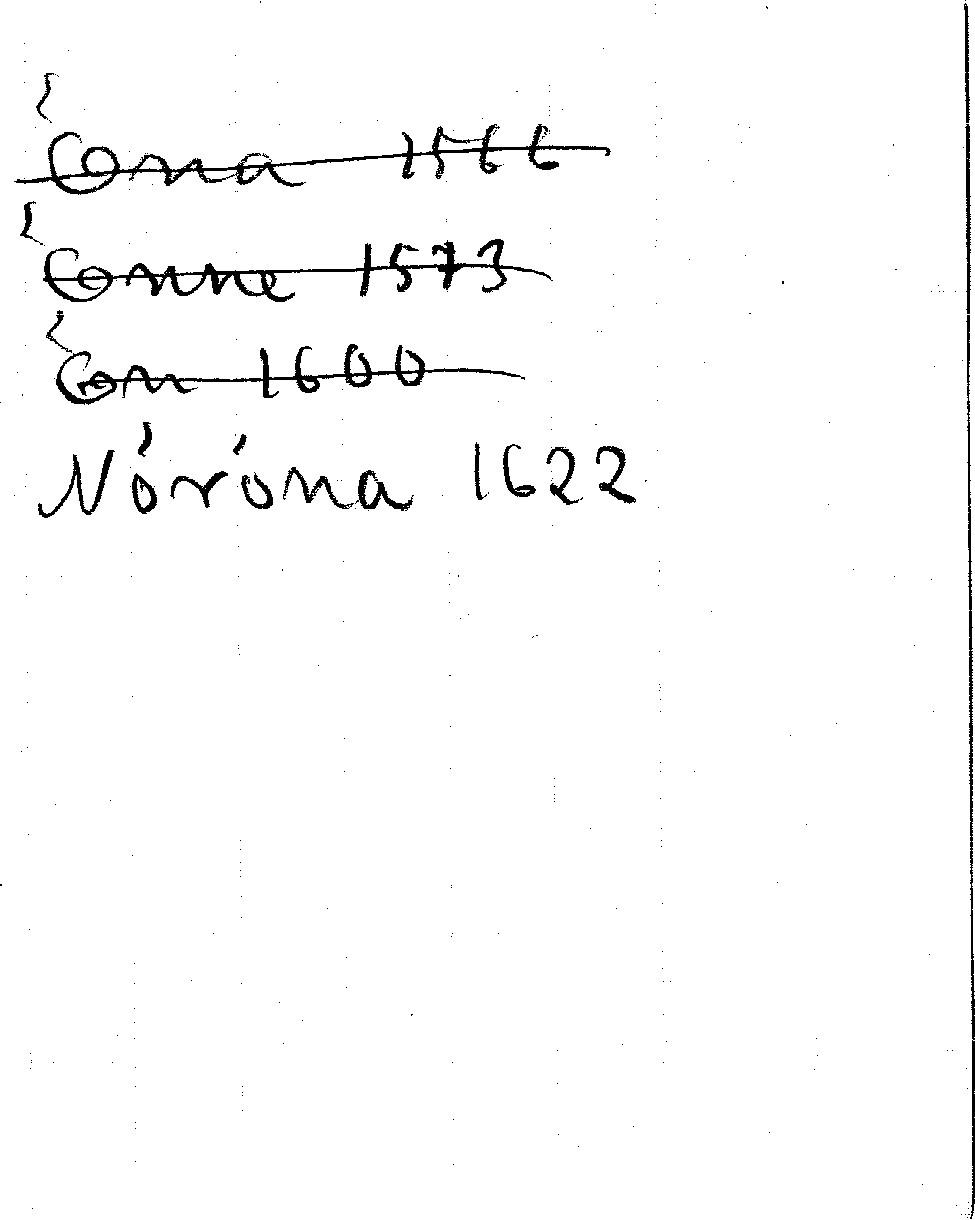 Cona 1566
Conne 1573
Con 1600
Nóróna 1622